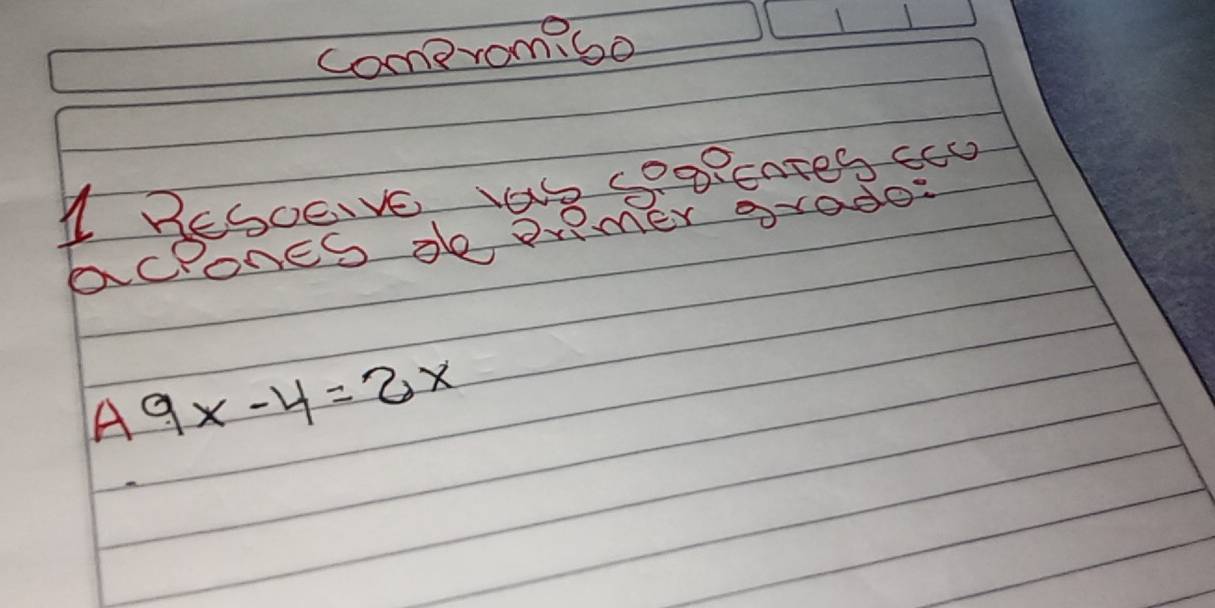 compromiso
1 Resoelve las sigientes ecu
aciones de primer grado:
A 9x-4=2x